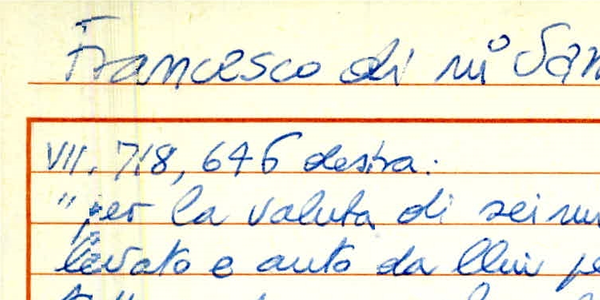 Francesco di m° San
VII. 718, 646 destra:
"per la valuta di sei
levato e auto da llui pe